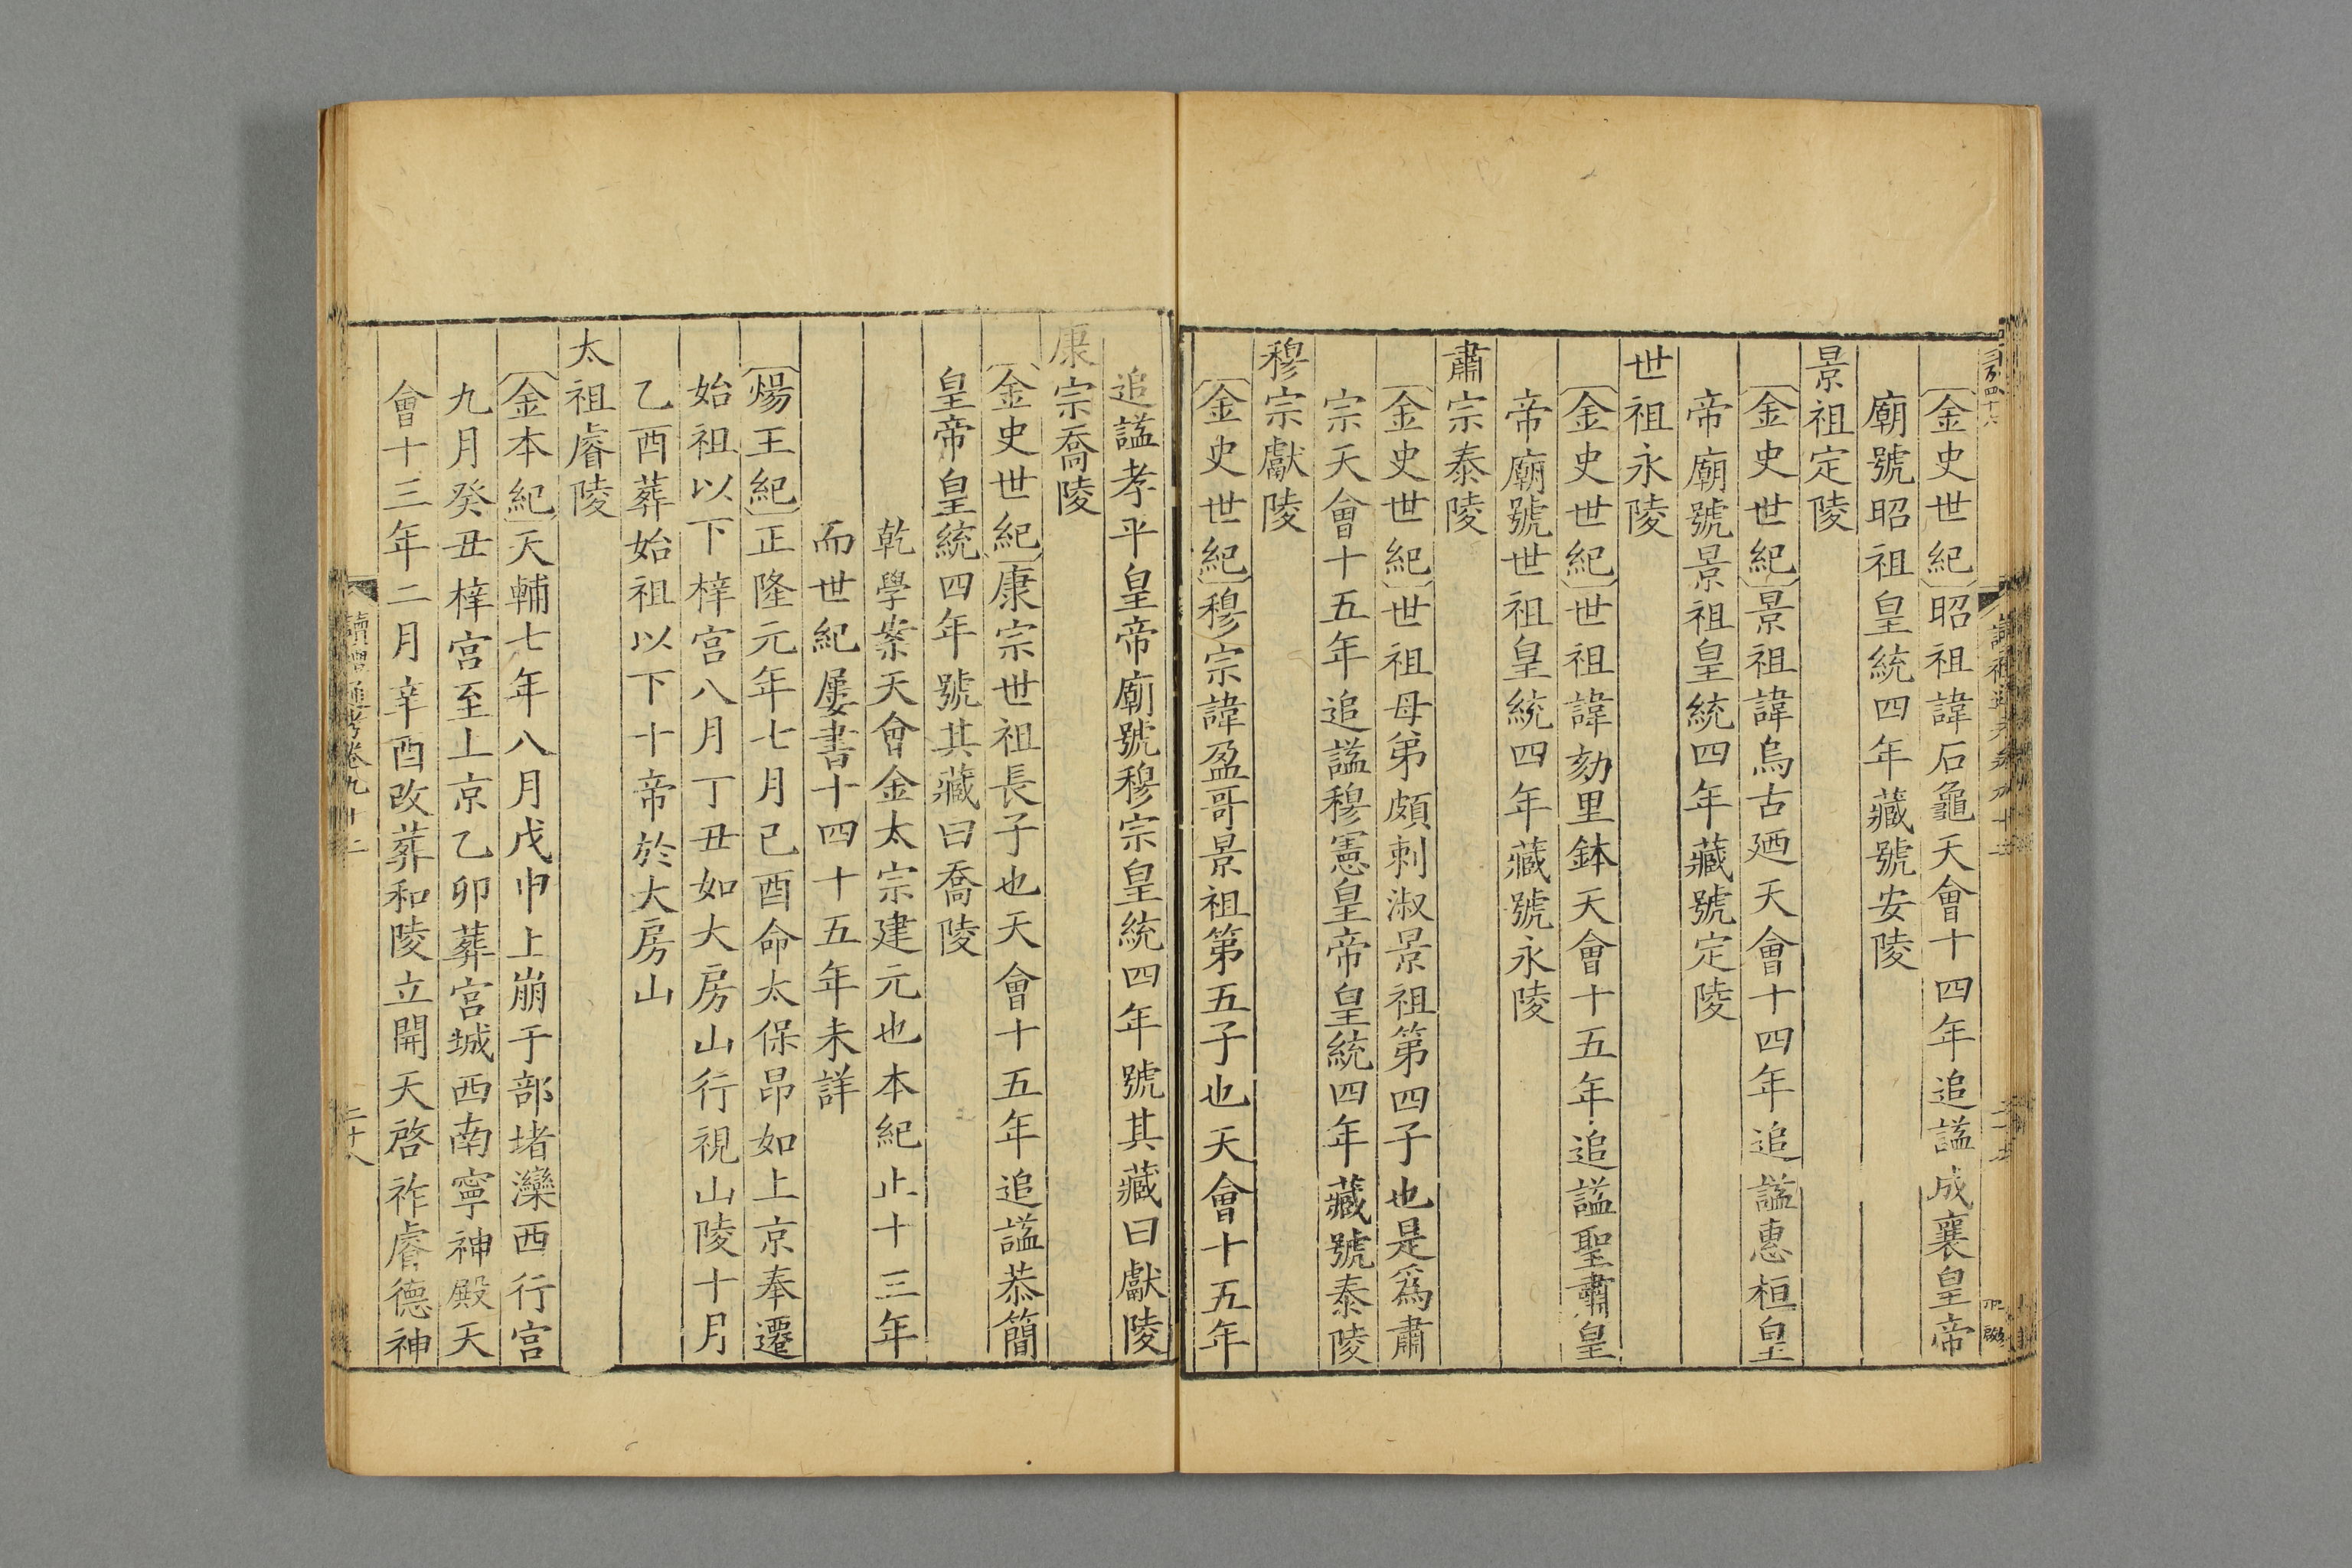 〔金史世紀〕昭祖諱石龜天會十四年追諡成襄皇帝
廟號昭祖皇統四年藏號安陵
景祖定陵
〔金史世紀〕景祖諱烏古廼天會十四年追諡惠桓皇
帝廟號景祖皇統四年藏號定陵
世祖永陵
〔金史世紀〕世祖諱劾里鉢天會十五年追諡聖肅皇
帝廟號世祖皇統四年藏號永陵
肅宗泰陵
〔金史世紀〕世祖母弟頗剌淑景祖第四子也是爲肅
宗天會十五年追諡穆憲皇帝皇統四年藏號泰陵
穆宗獻陵
〔金史世紀〕穆宗諱盈哥景祖第五子也天會十五年
追諡孝平皇帝廟號穆宗皇統四年號其藏曰獻陵
康宗喬陵
〔金史世紀〕康宗世祖長子也天會十五年追諡恭簡
皇帝皇統四年號其藏曰喬陵
乾學案天會金太宗建元也本紀止十三年
而世紀屢書十四十五年未詳
〔煬王紀〕正隆元年七月己酉命太保昂如上京奉遷
始祖以下梓宮八月丁丑如大房山行視山陵十月
乙酉葬始祖以下十帝於大房山
太祖睿陵
〔金本紀〕天輔七年八月戊申上崩于部堵濼西行宮
九月癸丑梓宮至上京乙卯葬宮城西南寧神殿天
會十三年二月辛酉改葬和陵立開天啓祚睿德神
讀禮通考卷九十二
二十八